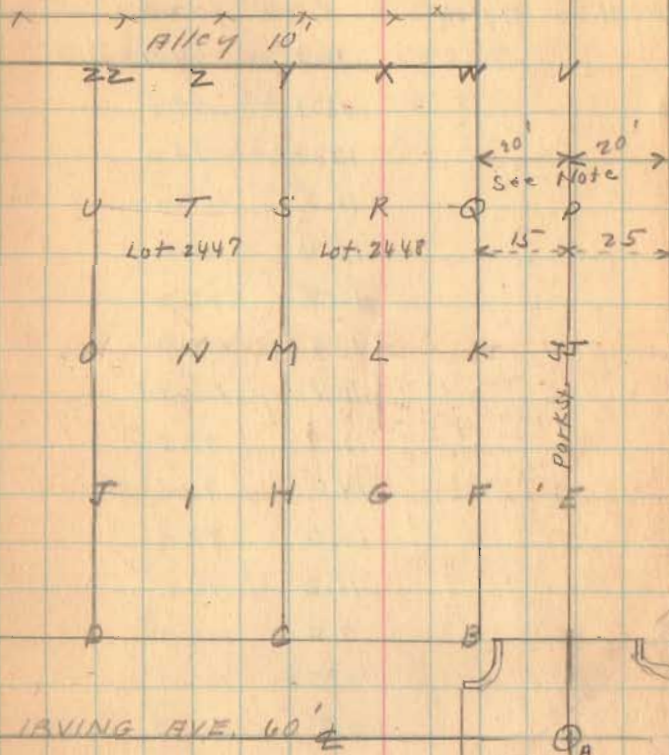 Alley 10'
ZZ Z Y X W V
20' 20'
See Note
U T S R Q P
Lot 2447 Lot 2448 15 25
O N M L K
Park St.
J I H G F E
D C B
IRVING AVE. 60' ℄
A